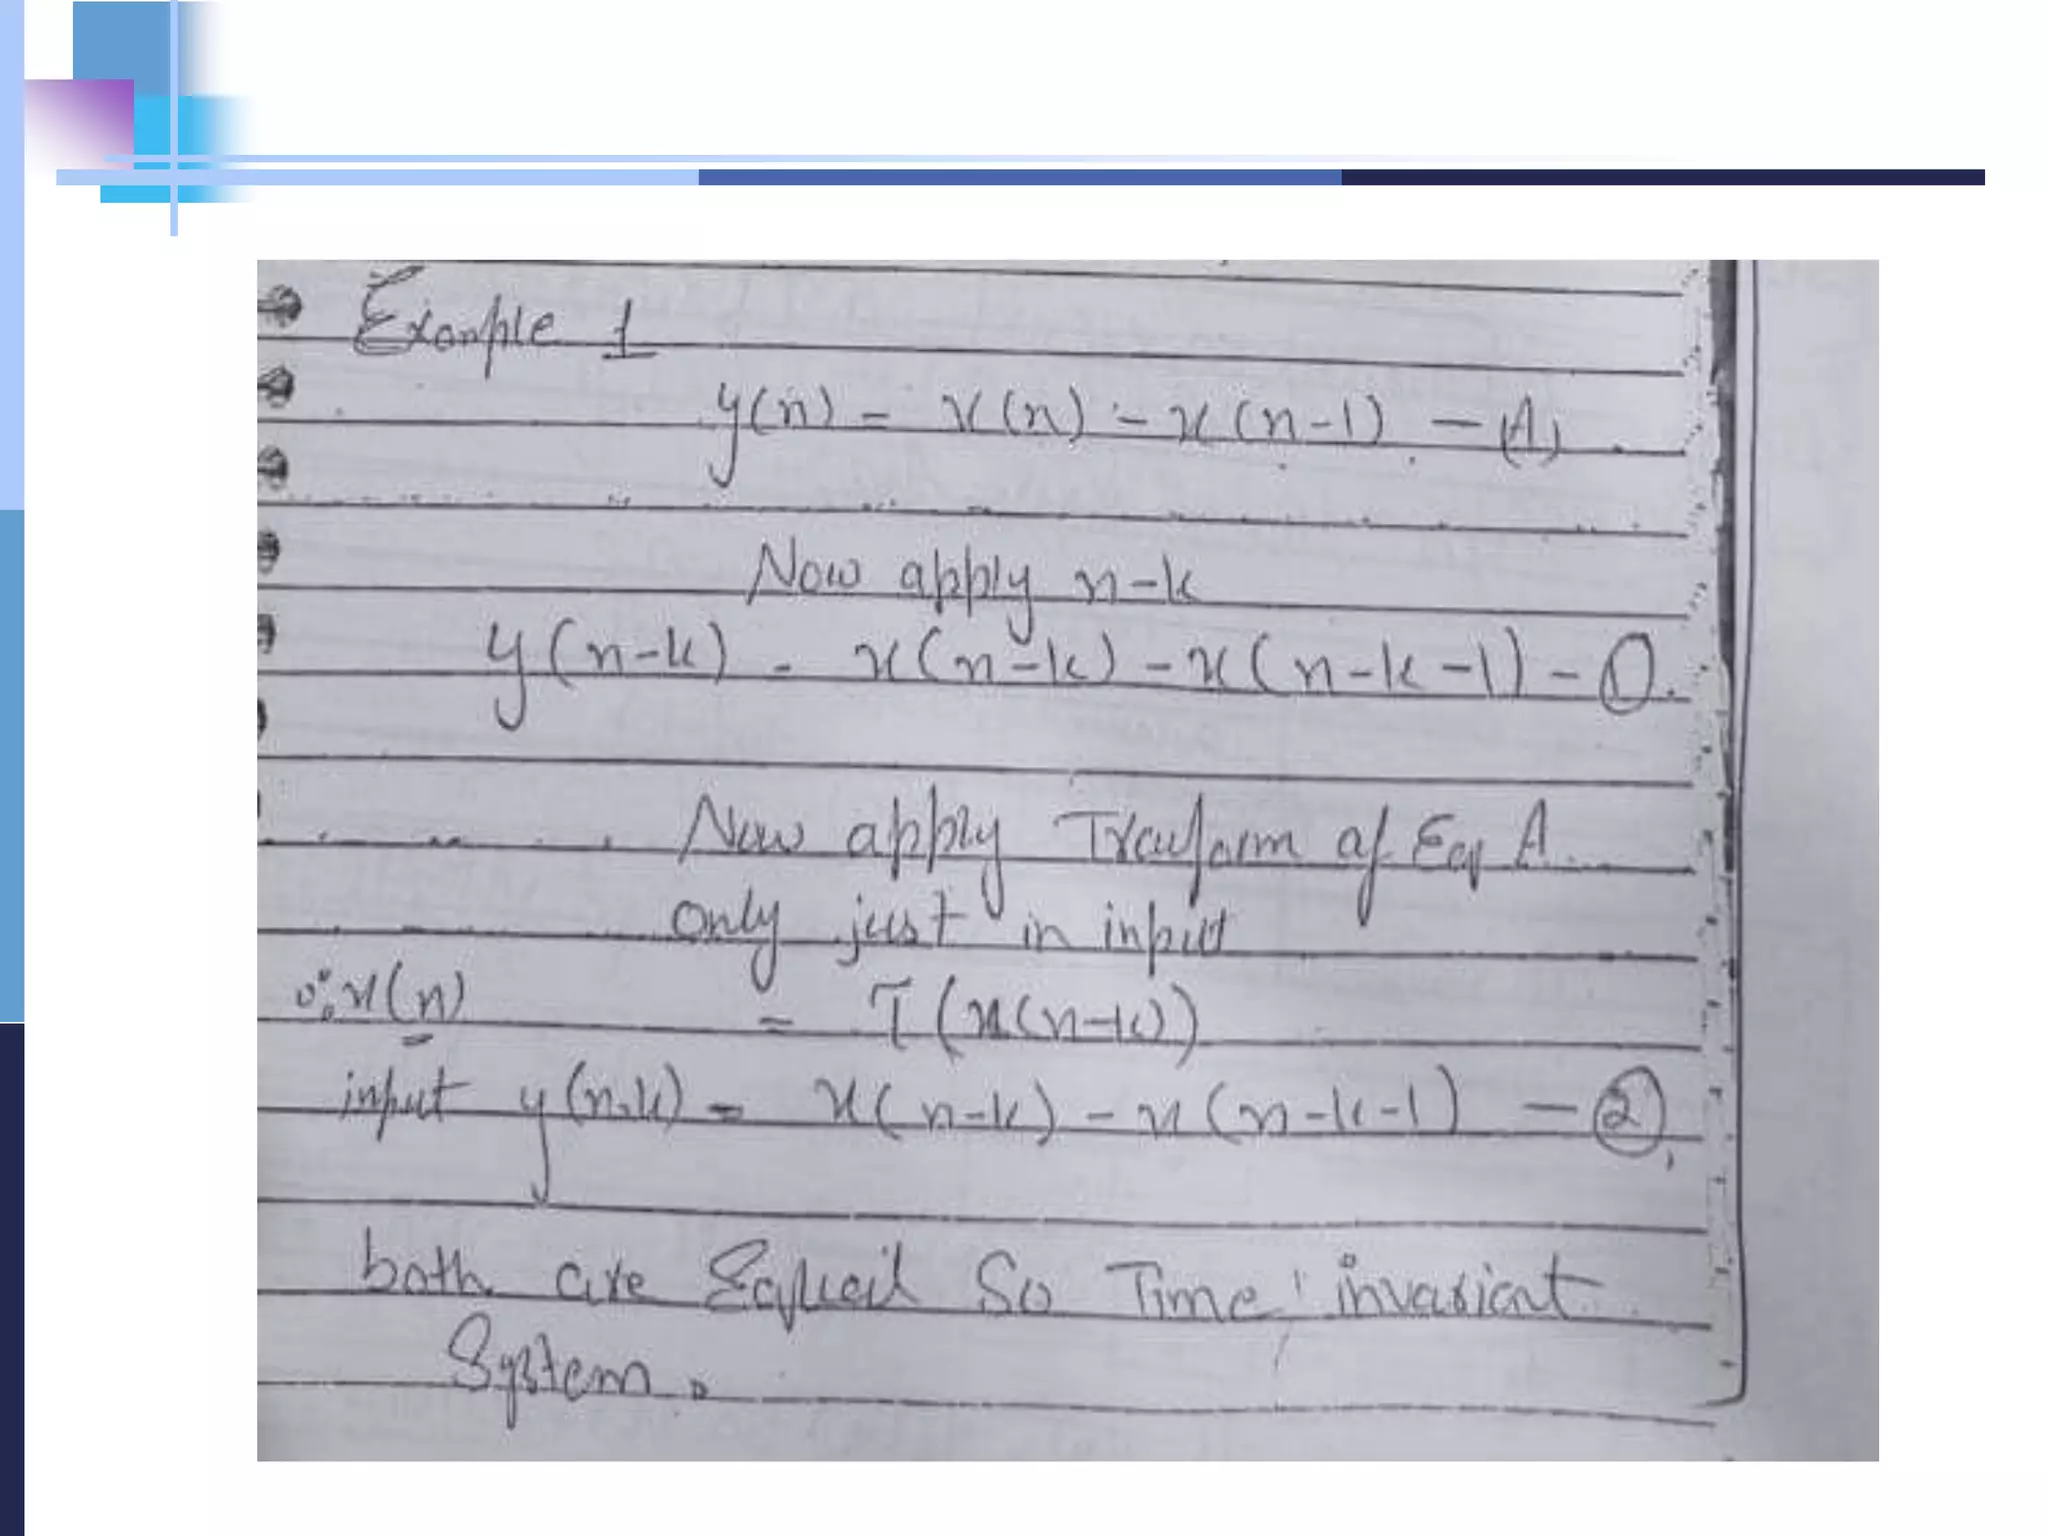 Example 1
y(n) = x(n) - x(n-1) - (A)
Now apply n-k
y(n-k) - x(n-k) - x(n-k-1) - ①.
Now apply Trasform of Eq A
only just in input
∵ x(n) = T(x(n-k))
input y(n-k) = x(n-k) - x(n-k-1) - ②
both are Equal So Time invariant
System.